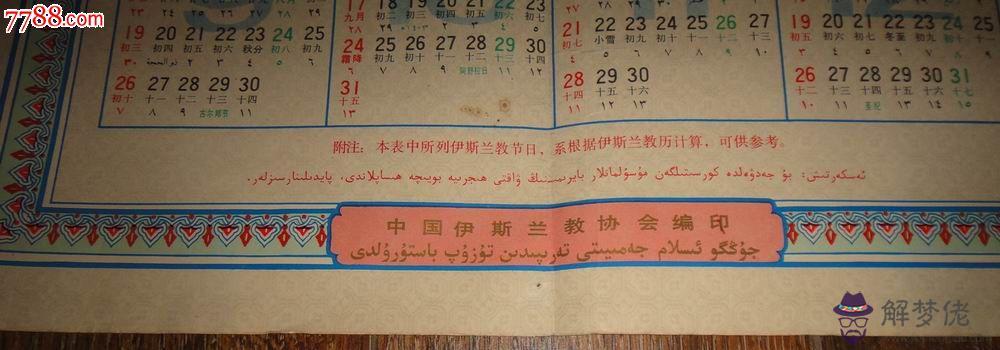 7788.com
17 22 23
九月 初二 初三 初四 初五 初六 初七
19 20 21 22 23 24 25
初三 初四 初五 初六 秋分 初八 初九
26 27 28 29 30
初十 十一 十二 十三 十四
٧ ٨ ٩ 古尔邦节 ١١
24 25 26 27 28 29 30
霜降 初九 初十 十一 十二 十三 十四
٦ ٧ ٨ ٩ 阿舒拉日 ١١ ١٢
31
十五
١٣
21 22 23 24 25 26 27
初七 小雪 初九 初十 十一 十二 十三
28 29 30
十四 十五 十六
19 20 21 22 23 24 25
初五 初六 初七 冬至 初九 初十 十一
26 27 28 29 30 31
十二 十三 十四 十五 十六 十七
١٠ ١١ 圣纪 ١٣ ١٤ ١٥
附注：本表中所列伊斯兰教节日，系根据伊斯兰教历计算，可供参考。
ئەسكەرتىش: بۇ جەدۋەلدە كۆرسىتىلگەن مۇسۇلمانلار بايرىمىنىڭ ۋاقتى ھىجرىيە بويىچە ھىساپلاندى، پايدىلىنارسىزلەر.
中国伊斯兰教协会编印
جۇڭگو ئىسلام جەمىيىتى تەرىپىدىن تۈزۈپ باستۇرۇلدى
解梦佬